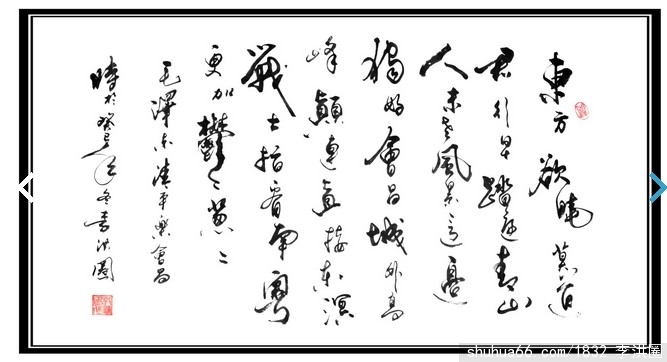 東方欲曉莫道
君行早踏遍青山
人未老風景這邊
獨好會昌城外高
峰顛連直接東溟
戰士指看南粵
更加鬱々葱々
毛澤東清平樂會昌
時於癸巳年冬李洪圖
shuhua66.com/1832 李洪